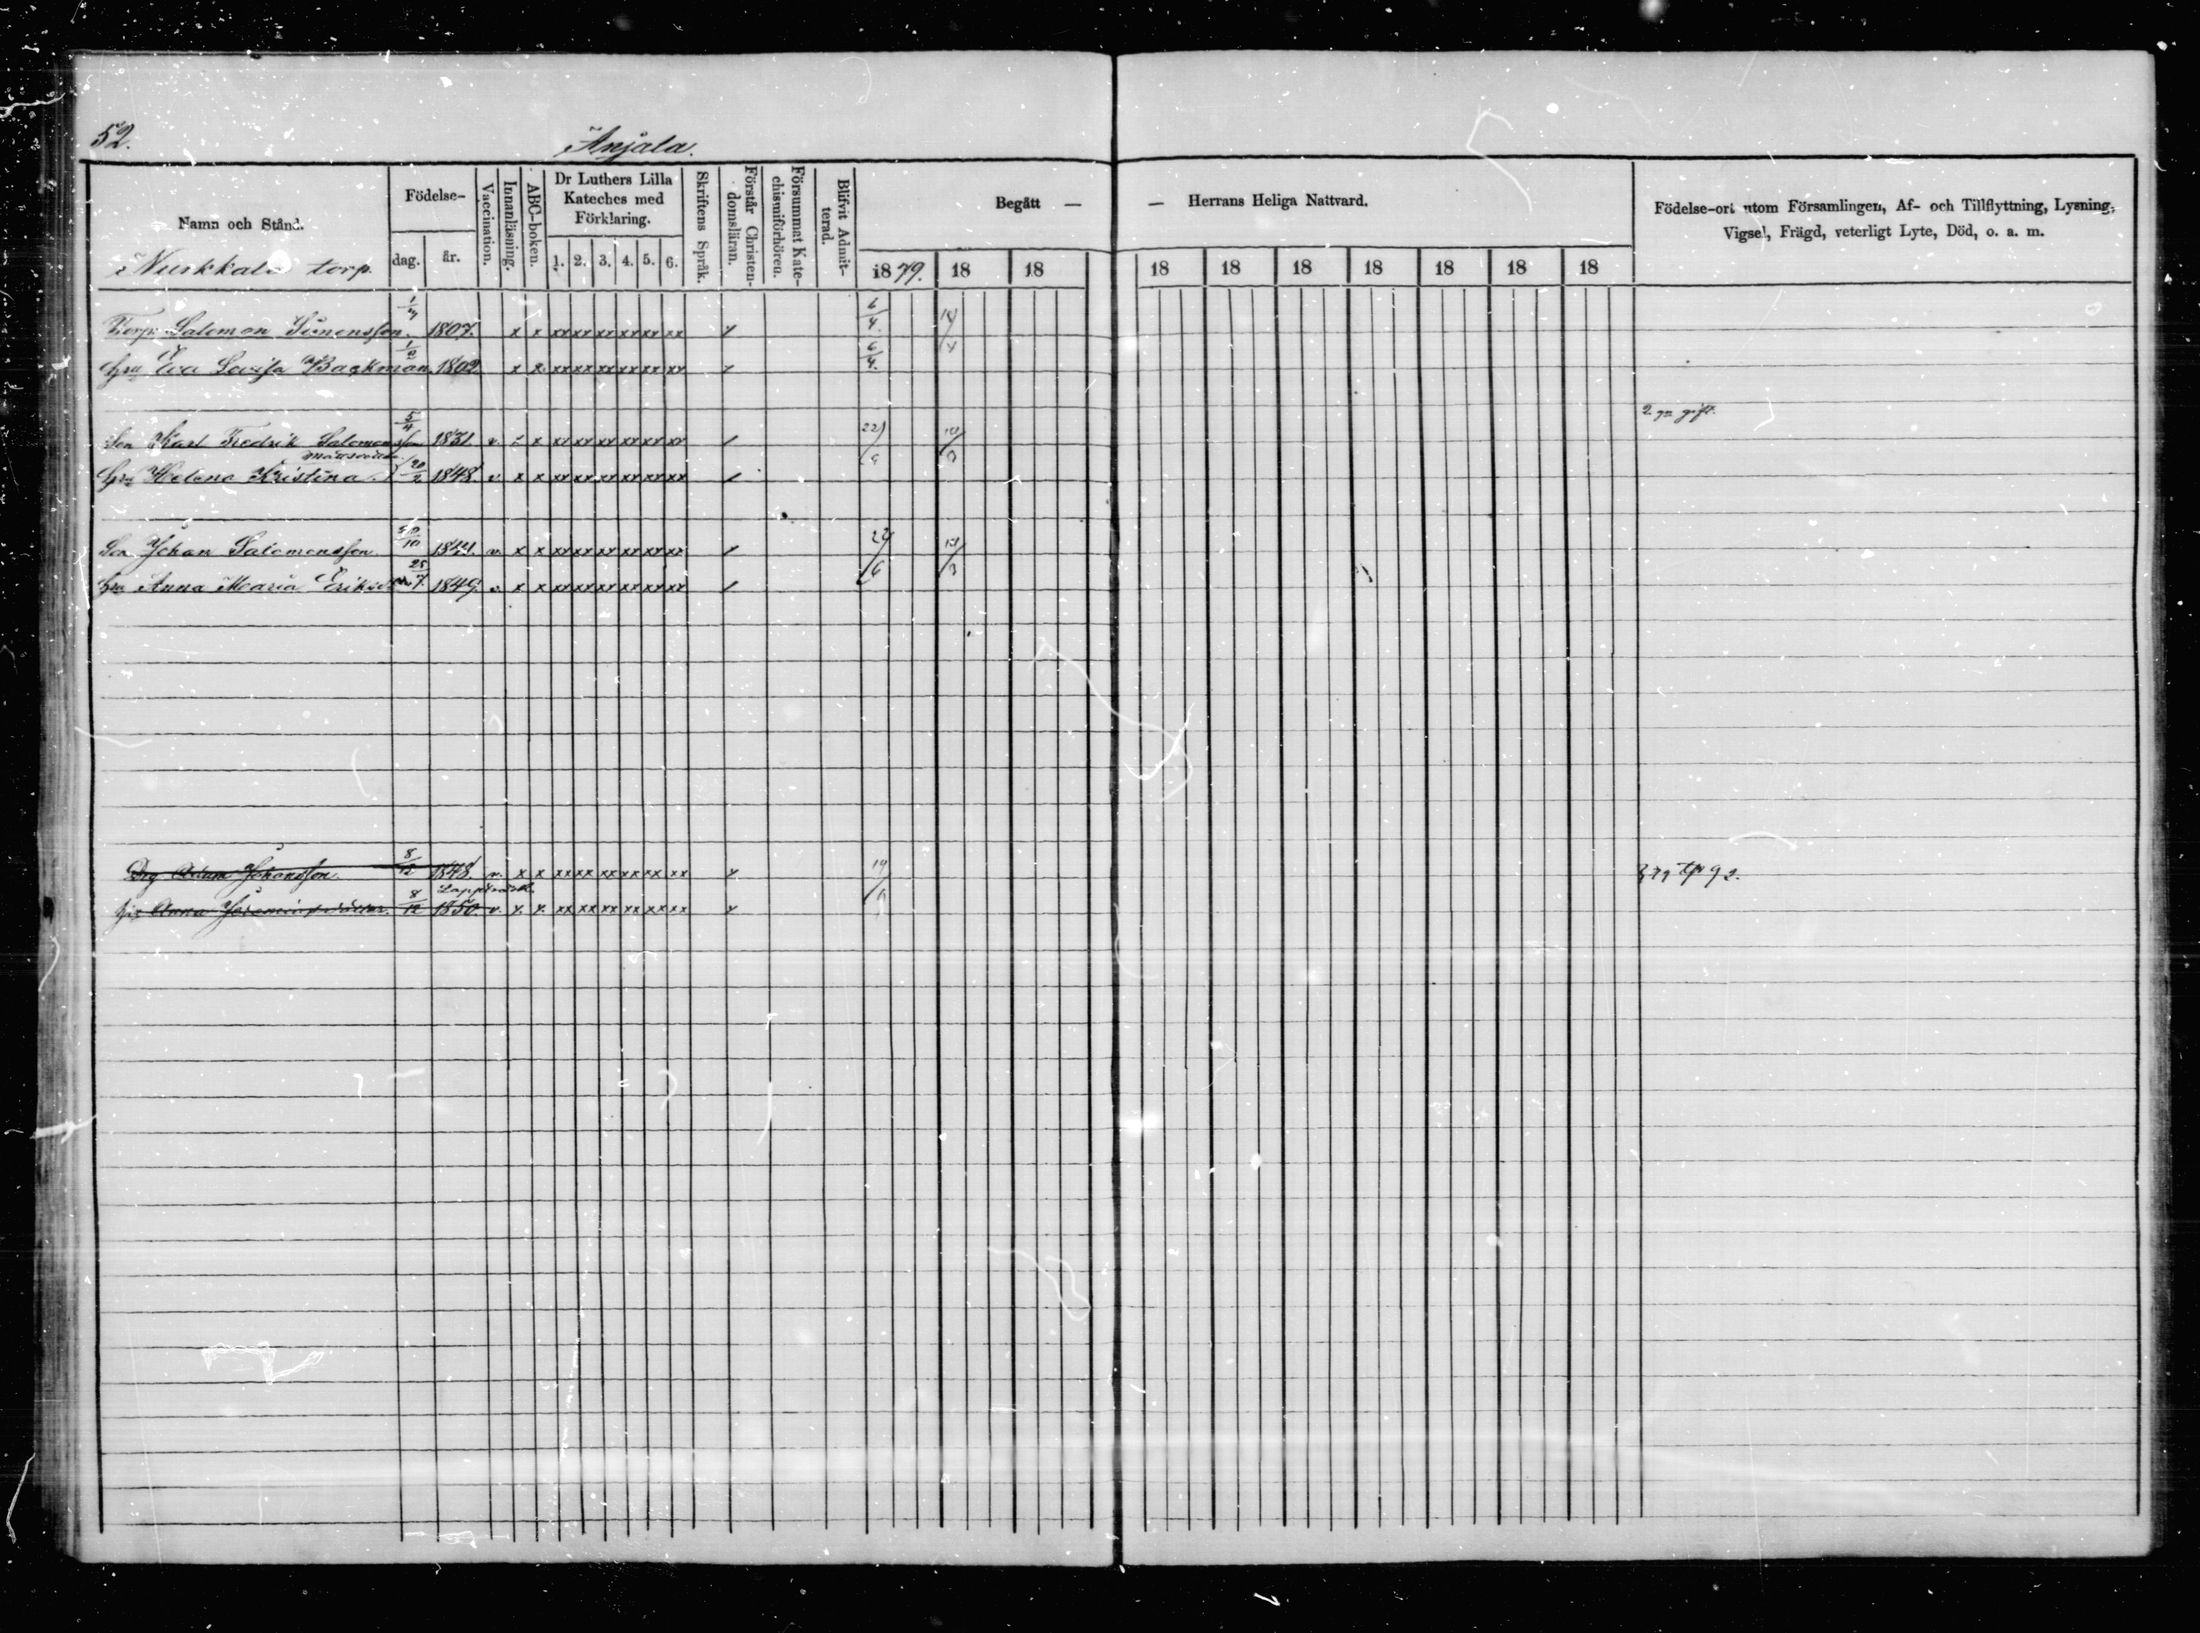 52.
Anjala.
Namn och Stånd.
Födelse-
dag.
år.
Vaccination.
Innanläsning.
ABC-boken.
Dr Luthers Lilla
Kateches med
Förklaring.
1. 2. 3. 4. 5. 6.
Skriftens Språk.
Förstår Christen-
domsläran.
Försummat Kate-
chismiförhören.
Blifvit Admit-
terad.
Begått —
— Herrans Heliga Nattvard.
1879. 18 18
18 18 18 18 18 18 18
Födelse-ort utom Församlingen, Af- och Tillflyttning, Lysning,
Vigsel, Frägd, veterligt Lyte, Död, o. a. m.
Nurkkala torp.
Torp. Salomon Simonsson. 1807. x x xx xx xx xx xx xx 6/4.
hu Eva Lovisa Backman 1802 x x xx xx xx xx xx xx 6/4.
2 gn gift.
Son Karl Fredrik Salomonsson 5/4 1831 v. x xx xx xx xx xx xx 22/6
hu Helena Kristina Mattsdotter 20/2 1848 v. x x xx xx xx xx xx xx
Son Johan Salomonsson 1844. v. x x xx xx xx xx xx xx 22/6
hu Anna Maria Eriksd 25/7. 1849. v. x x xx xx xx xx xx xx
Drg Adam Johansson. 8/12 1848 v. x x xx xx xx xx xx xx 19/6
Lappträsk
hu Anna 8/12 1850. v. x. x. xx xx xx xx xx xx